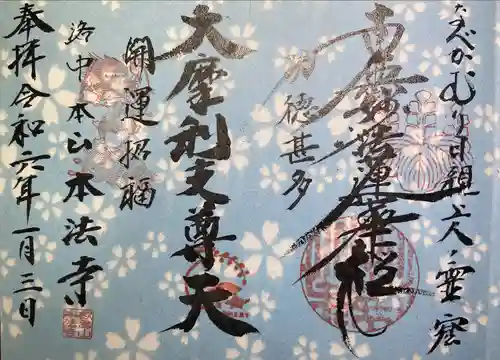 なべかむり日親上人霊窟
南無妙法蓮華経
功徳甚多
大摩利支尊天
開運招福
洛中本山本法寺
奉拝令和六年一月三日